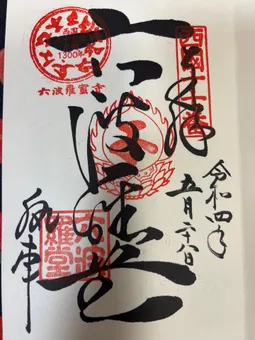 奉拝
西国十七番
令和四年
五月二十八日
六波羅堂
1300年
六波羅蜜寺
六波羅堂